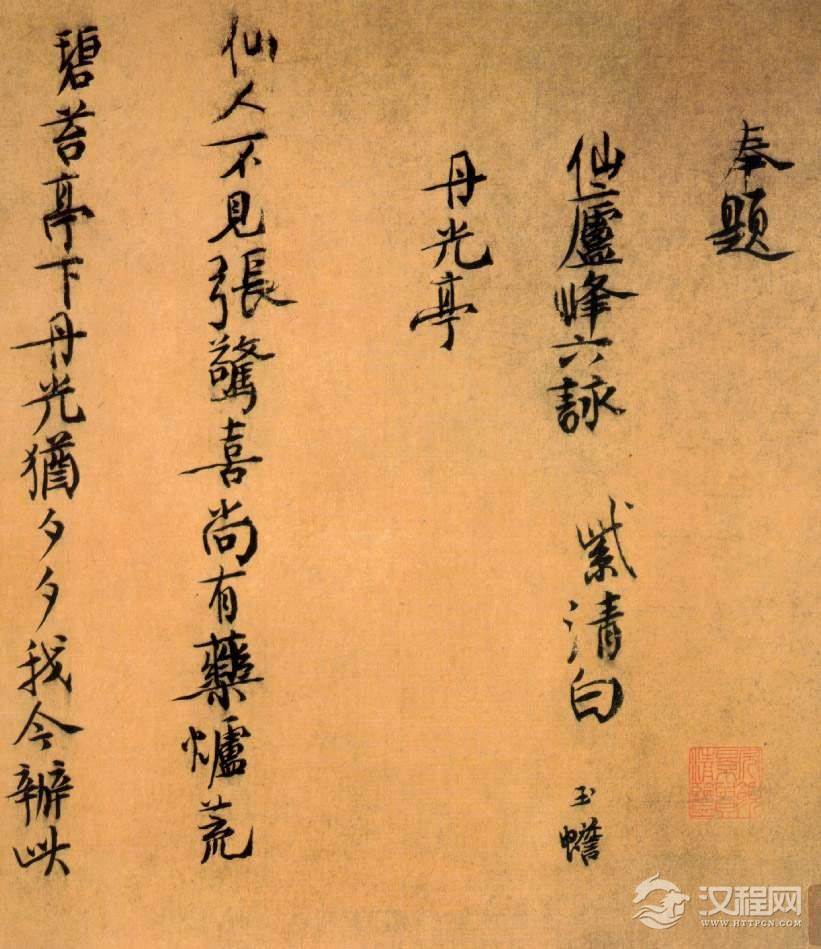 奉題
仙廬峰六詠　紫清白玉蟾
丹光亭
仙人不見張驚喜尚有藥爐荒
碧苔亭下丹光猶夕夕我今辦此
汉程网
WWW.HTTPCN.COM